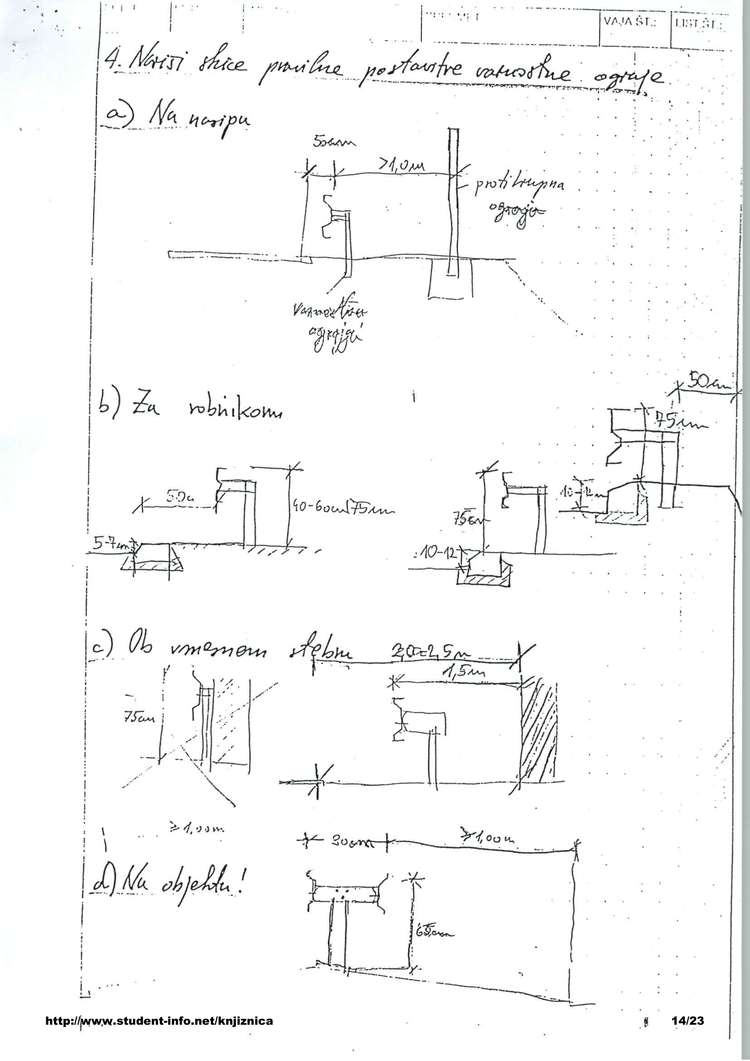 VAJA ŠT.: LIST ŠT.:
4. Nariši skice pravilne postavitve varnostne ograje
a) Na nasipu
50cm
>1,0m
protihrupna
ograja
varnostna
ograja
b) Za robnikom
50cm
75cm
50
40-60cm/75cm
5-7cm
75cm
10-12
c) Ob vmesnem stebru
2,0-2,5m
1,5m
75cm
≥1,00m
≥1,00m
d) Na objektu!
65cm
http://www.student-info.net/knjiznica
14/23